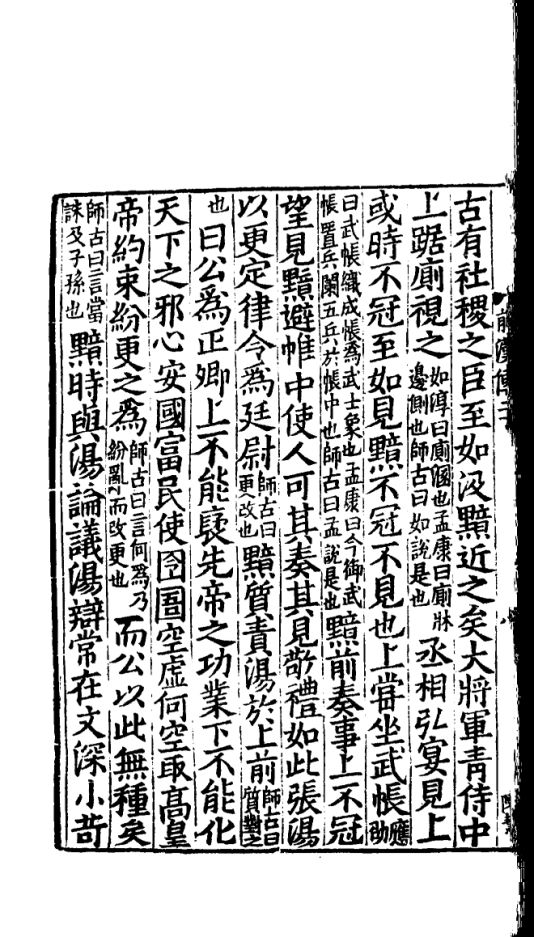 古有社稷之臣至如汲黯近之矣大將軍青侍中
上踞廁視之如淳曰廁溷也孟康曰廁牀邊側也師古曰如說是也丞相弘宴見上
或時不冠至如見黯不冠不見也上嘗坐武帳應劭
曰武帳織成帳爲武士象也孟康曰今御武帳置兵闌五兵於帳中也師古曰孟說是也黯前奏事上不冠
望見黯避帷中使人可其奏其見敬禮如此張湯
以更定律令爲廷尉師古曰更改也黯質責湯於上前師古曰質對之
也曰公爲正卿上不能襃先帝之功業下不能化
天下之邪心安國富民使囹圄空虛何空取高皇
帝約束紛更之爲師古曰言何爲乃紛亂而改更也而公以此無種矣
師古曰言當誅及子孫也黯時與湯論議湯辯常在文深小苛